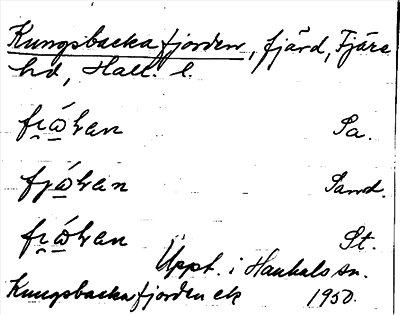 Kungsbackafjorden, fjärd, Fjäre
hd, Hall. l.
Sa.
Sand.
St.
Uppt. i Hanhals sn.
Kungsbackafjorden ek 1950.